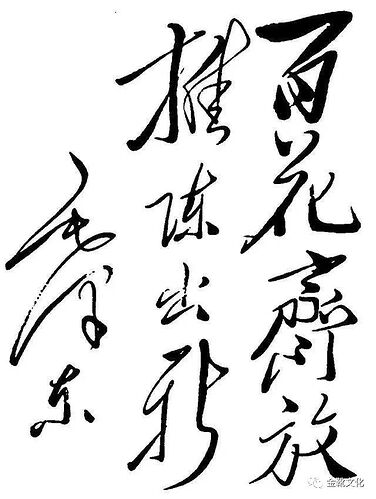 百花齊放
推陈出新
毛泽东
金鼎文化